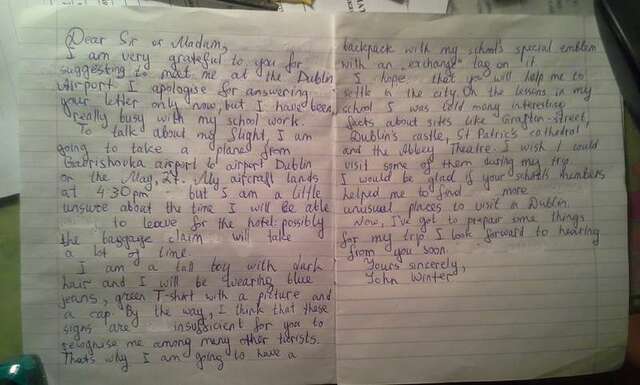 Dear Sir or Madam,
I am very grateful to you for
suggesting to meet me at the Dublin
Airport I apologise for answering
your letter only now, but I have been
really busy with my school work.
To talk about my flight, I am
going to take a plane from
Gabrishovka airport to airport Dublin
on the May, 27. My aircraft lands
at 4.30pm but I am a little
unsure about the time I will be able
to leave for the hotel: possibly
the baggage claim will take
a lot of time.
I am a tall boy with dark
hair and I will be wearing blue
jeans, green T-shirt with a picture and
a cap. By the way, I think that these
signs are insufficient for you to
recognise me among many other turists.
That's why I am going to have a
backpack with my school's special emblem
with an "exchange" tag on it
I hope that you will help me to
settle in the city. On the lessons in my
school I was told many interesting
facts about sites like Grafton-street,
Dublin's castle, St Patric's cathedral
and the Abbey Theatre. I wish I could
visit some of them during my trip.
I would be glad if your school's members
helped me to find more
unusual places to visit a Dublin.
Now, I've got to prepair ome things
for my trip. I look forward to hearing
from you soon.
Yours sincerely,
John Winter